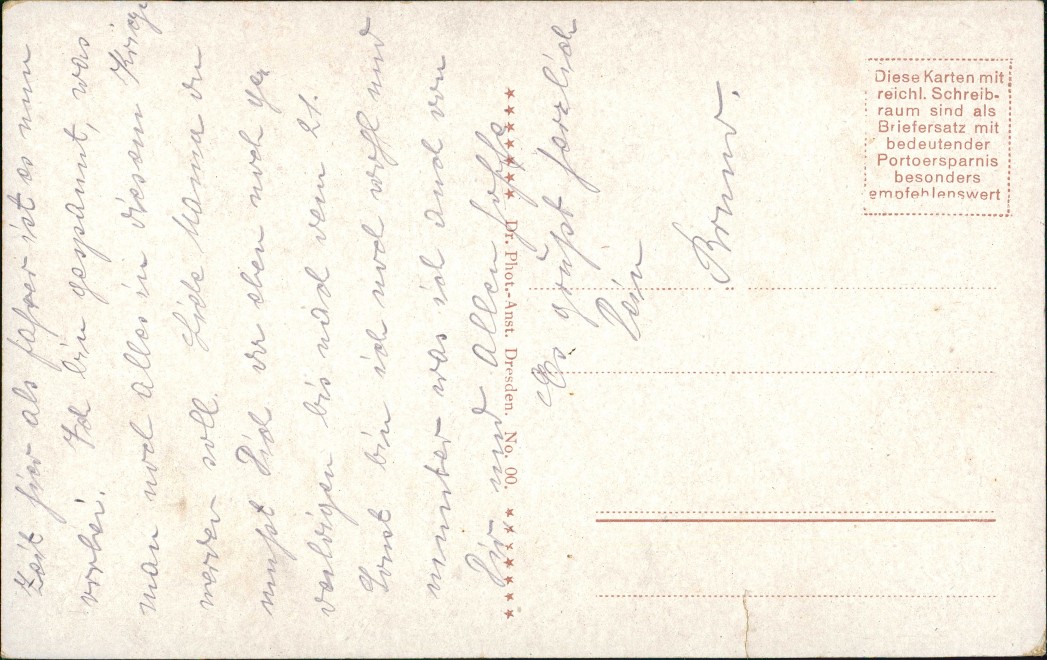 Zeit hier als fahrer ist es nun
vorbei. Ich bin gespannt, was
man noch alles in diesem Kriege
werden soll. Liebe Mama du
mußt Dich da eben noch ge
duldigen bis nach dem 21.
Sonst bin ich noch wohl und
munter was ich auch von
Dir und allen hoffe.
Es grüßt herzlich
Dein
Bruno.
Dr. Phot.-Anst. Dresden. No. 00.
Diese Karten mit
reichl. Schreib-
raum sind als
Briefersatz mit
bedeutender
Portoersparnis
besonders
empfehlenswert